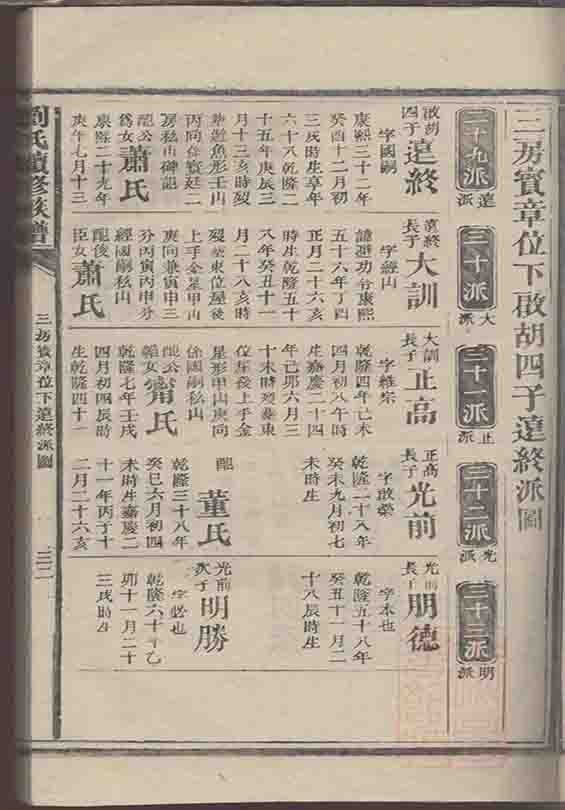 三房賓章位下啟胡四子遠終派圖
二十九派
遠派
三十派
大派
三十一派
正派
三十二派
光派
三十三派
明派
啟胡四子
遠終
字國嗣
康熙三十二年
癸酉十二月初
三戌時生享年
六十八乾隆二
十五年庚辰三
月十三亥時歿
葬遊魚形壬山
丙同侄賓廷二
房私山碑記
配公
為女
蕭氏
康熙三十九年
庚午七月十三
遠終長子
大訓
字經山
諱遜功令康熙
五十六年丁酉
正月二十六亥
時生乾隆五十
八年癸丑十一
月二十八亥時
歿葬東位屋後
上手金星甲山
庚向兼寅申三
分丙寅丙申分
經國嗣私山
配俊
臣女
蕭氏
大訓長子
正高
字維宗
乾隆四年己未
四月初八午時
生嘉慶二十四
年己卯六月三
十未時歿葬東
位屋後上手金
星形甲山庚向
係國嗣私山
配公
韜女
甯氏
乾隆七年壬戌
四月初四辰時
生乾隆四十一
正高長子
光前
字啟榮
乾隆二十八年
癸未九月初七
未時生
配
董氏
乾隆三十八年
癸巳六月初四
未時生嘉慶二
十一年丙子十
二月二十六亥
光前長子
明德
字本也
乾隆五十八年
癸丑十一月二
十八辰時生
光前次子
明勝
字必也
乾隆六十年乙
卯十一月二十
三戌時生
劉氏續修族譜
三房賓章位下遠終派圖
三二